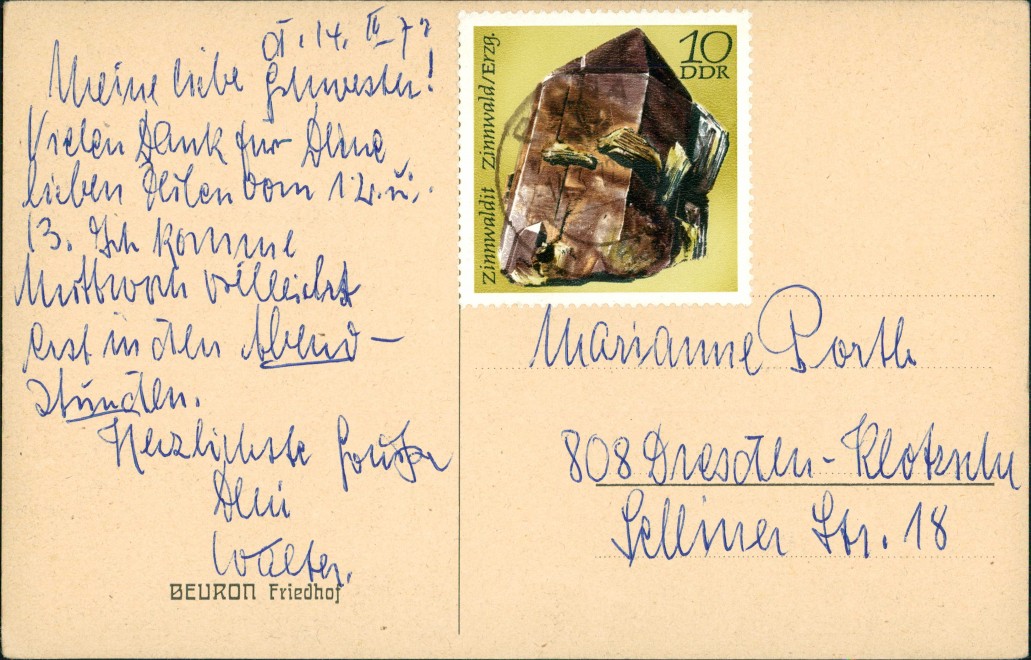 d. 14. IV. 72
Meine liebe Schwester!
Vielen Dank für Deine
lieben Zeilen vom 12. u.
13. Ich komme
Mittwoch vielleicht
erst in den Abend-
stunden.
Herzlichste Grüße
Dein
Walter.
BEURON Friedhof
10
DDR
Zinnwaldit Zinnwald/Erzg.
Marianne Porth
808 Dresden-Klotzsche
Selliner Str. 18